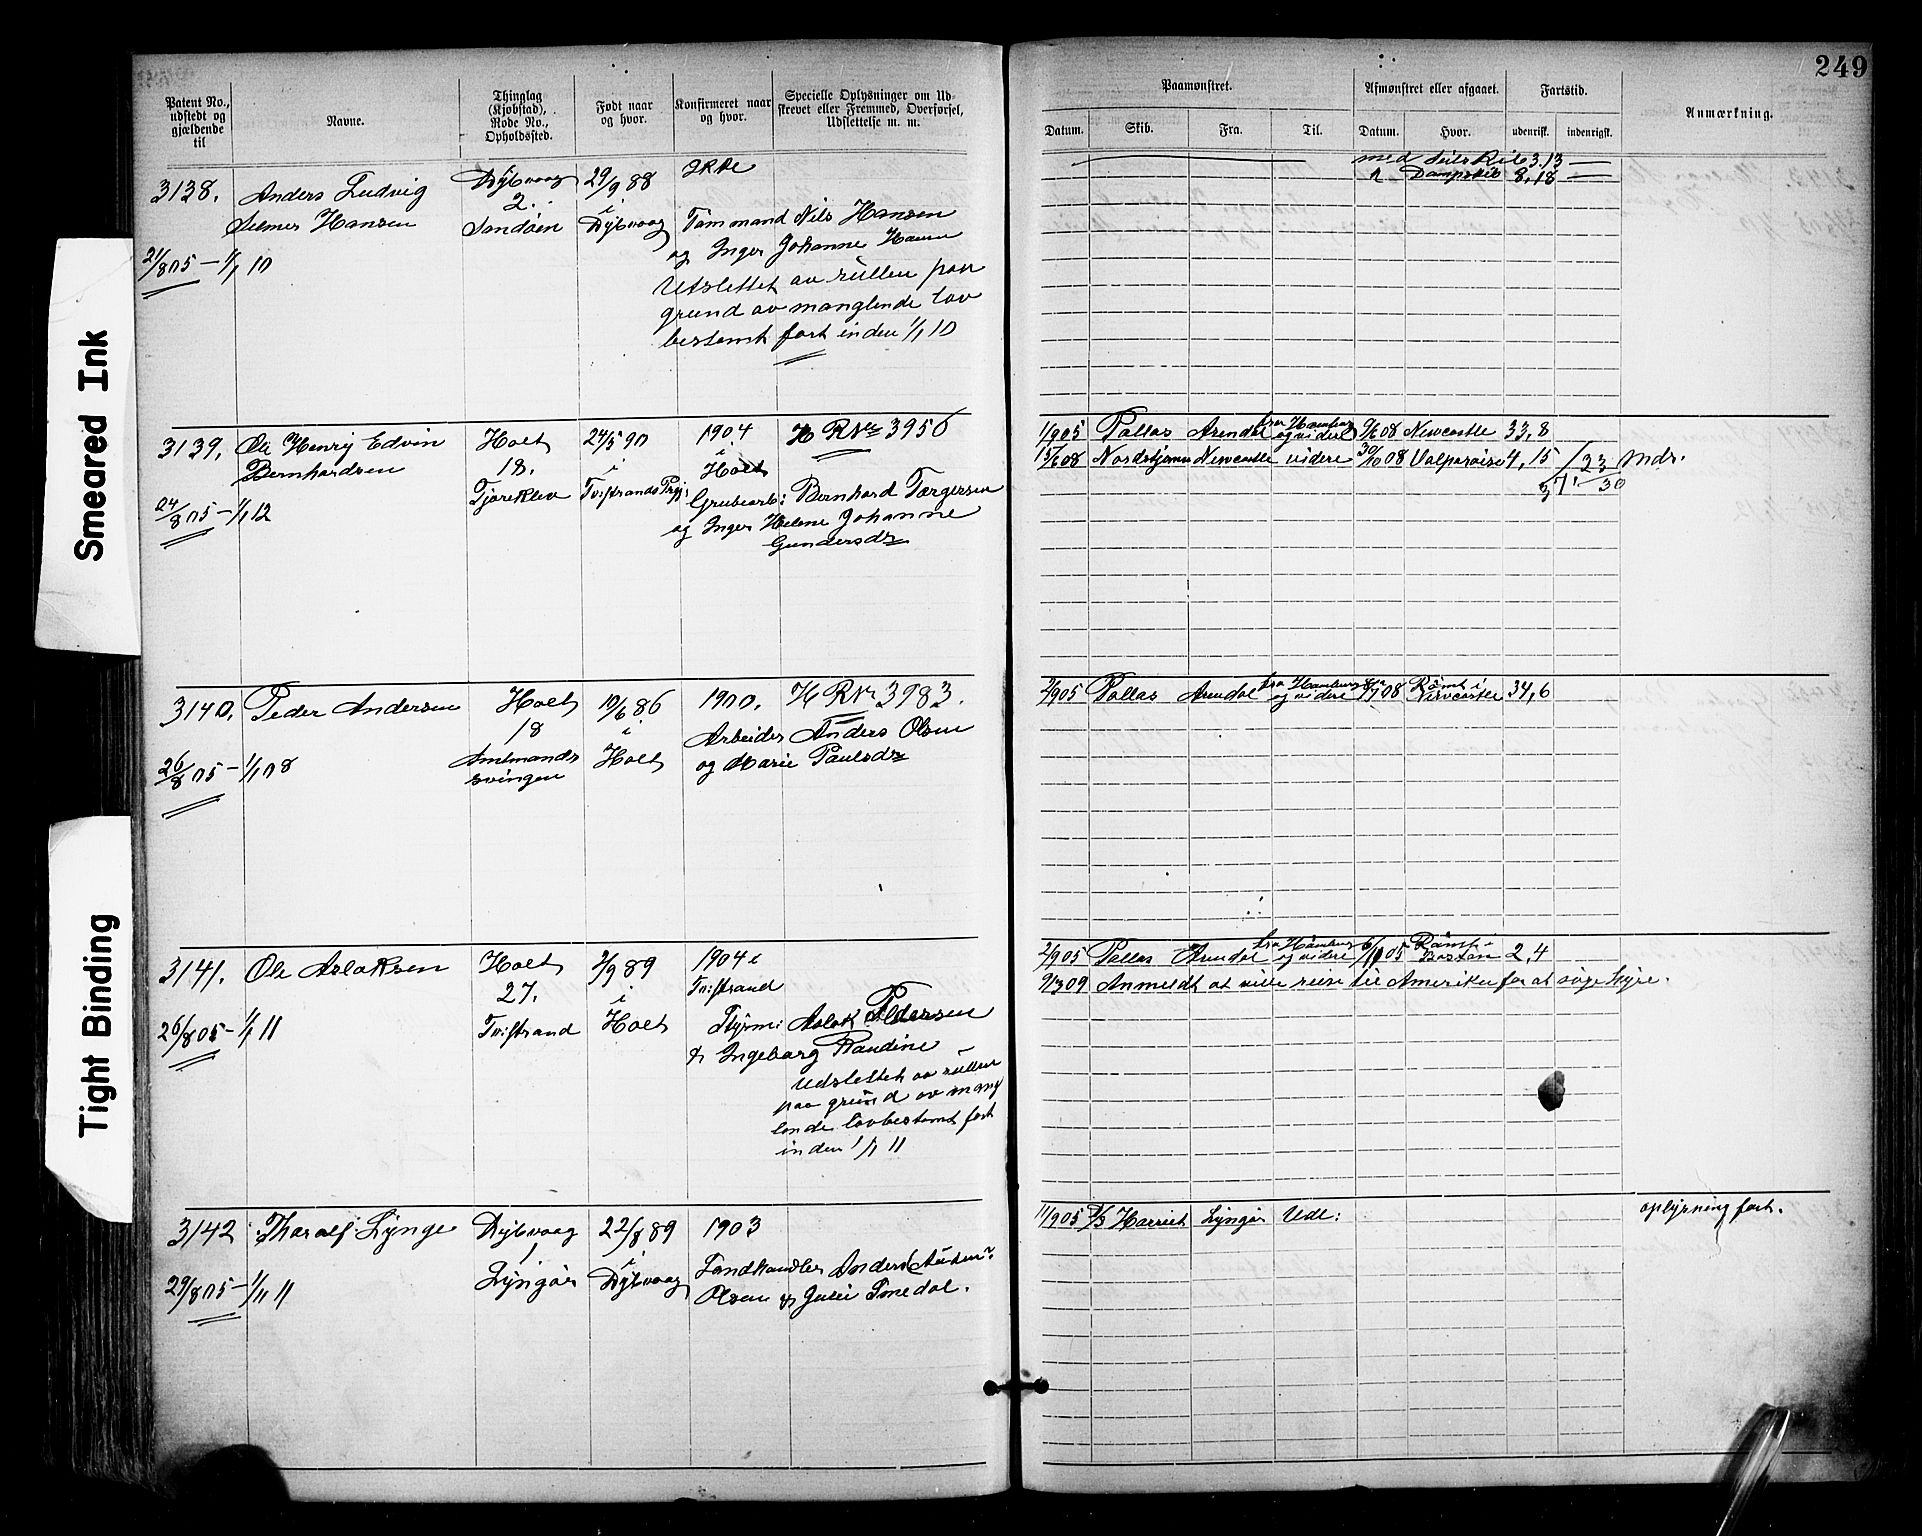 249
Patent No., udstedt og gjældende til
Navne.
Thinglag (Kjøbstad), Rode No., Opholdssted.
Født naar og hvor.
Konfirmeret naar og hvor.
Specielle Oplysninger om Udskrevet eller Fremmed, Overførsel, Udslettelse m. m.
Paamønstret.
Afmønstret eller afgaaet.
Fartstid.
Anmærkning.
Datum.
Skib.
Fra.
Til.
Datum.
Hvor.
udenrifk.
indenrigfk.
3138.
Anders Ludvig
Selmer Hansen
21/8 05 – 1/1 10
Dybvaag
2.
Sandøen
29/9 88
i
Dybvaag
Ikke
Tømmand Nils Hansen
og Inger Johanne
Utslettet av rullen paa
grund av manglende lov
bestemt fart inden 1/1 10
med Seilskib 3,13 —
Dampskib 8,18 —
3139.
Ole Henry Edvin
Bernhardsen
24/8 05 – 1/1 12
Holt
18.
Tjæreklev
24/5 90
i
Tvistrands
1904
i
Holt
H R Nr 3956
Grubearb: Bernhard Tørgersen
og Inger Helene Johanne
Gundersdr
1/9 05 Pallas Arendal fra Hamburg og videre 9/6 08 Newcastle 33,8
15/6 08 Nordstjernen Newcastle videre 30/10 08 Valparaiso 4,15
37
23
30 Mdr.
3140.
Peder Andersen
26/8 05 – 1/1 08
Holt
18
Amtmands
svingen
10/6 86
i
Holt
1900.
H R Nr 3983.
Arbeider Anders Olsen
og Marie Paulsdr
2/9 05 Pallas Arendal fra Hamburg og videre 08 Rømt i Newcastle 34,6
3141.
Ole Aslaksen
26/8 05 – 1/1 11
Holt
27.
Tvistrand
2/9 89
i
Holt
1904 i
Tvistrand
Styrm: Aslak Pedersen
& Ingeborg Raudine
Udslettet av rullen
paa grund av mang
lende lovbestemt fart
inden 1/1 11
2/9 05 Pallas Arendal fra Hamburg og videre 6/11 05 Rømt i Boston 2,4
9/3 09 Anmeldt at ville reise til Amerika for at søge hyre.
3142
Tharalf Lynge
29/8 05 – 1/1 11
Dybvaag
1
Lyngør
22/8 89
i
Dybvaag
1903
Landhandler Anders
Olsen & Julie Smedal.
11/9 05 D/S Harriet Lyngør Udl:
oplysning fart.
Smeared Ink
Tight Binding